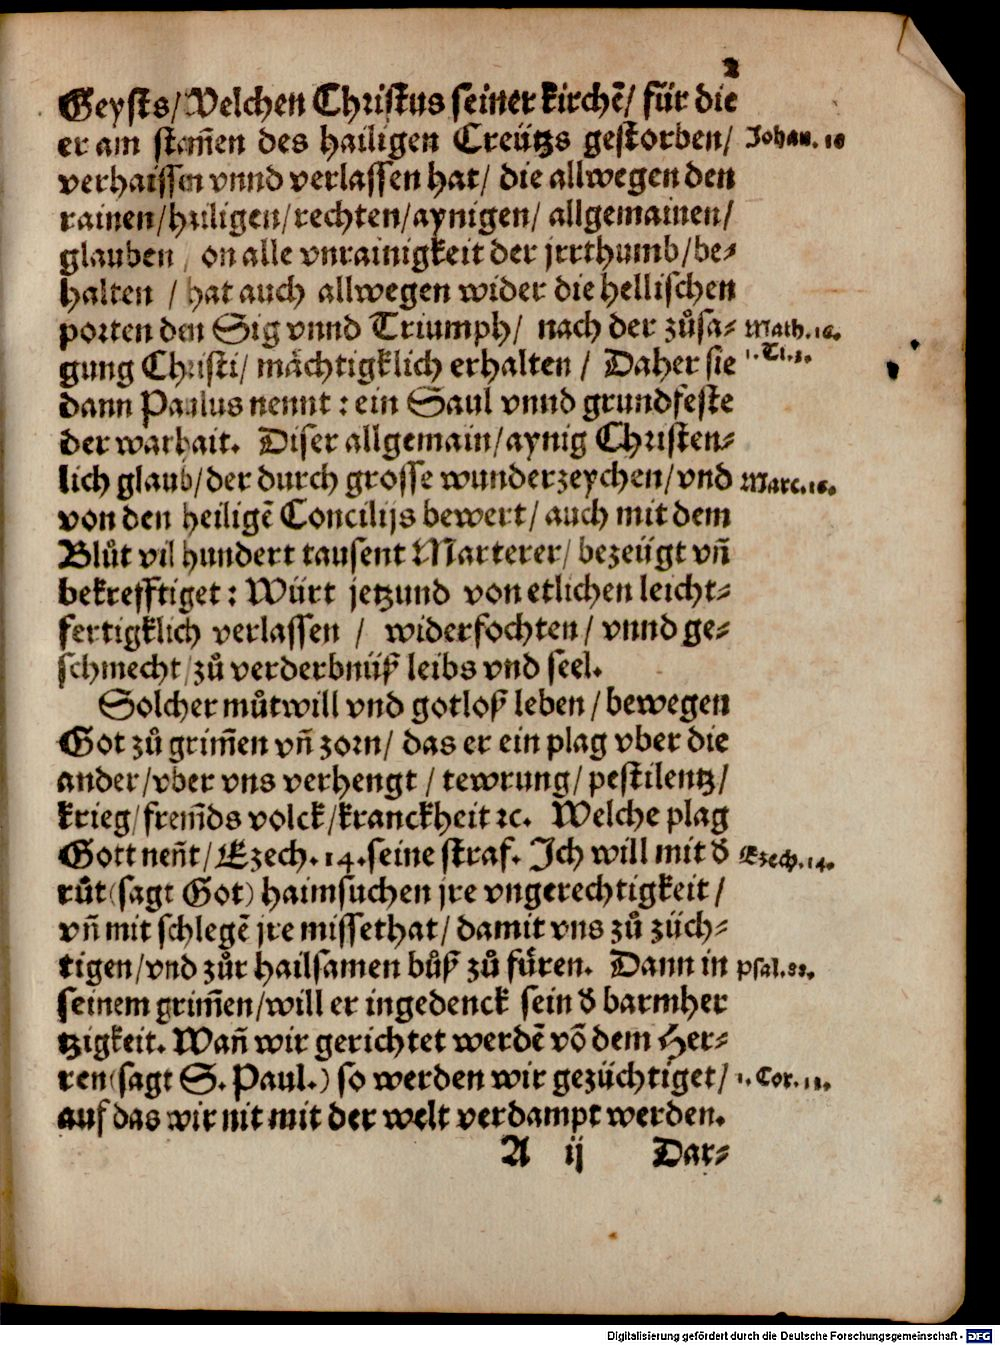 2
Geysts/ Welchen Christus seiner kirchẽ/ für die
er am stam̃en des hailigen Creützs gestorben/ Johan. 10
verhaissen vnnd verlassen hat/ die allwegen den
rainen/ hailigen/ rechten/ aynigen/ allgemainen/
glauben / on alle vnrainigkeit der jrrthumb/ be-
halten / hat auch allwegen wider die hellischen
porten den Sig vnnd Triumph/ nach der zůsa- Math. 16.
gung Christi/ mächtigklich erhalten / Daher sie 1. Ti. 3.
dann Paulus nennt : ein Saul vnnd grundfeste
der warhait. Diser allgemain/ aynig Christen-
lich glaub/ der durch grosse wunderzeychen/ vnd Marc. 16.
von den heiligẽ Concilijs bewert/ auch mit dem
Blůt vil hundert tausent Marterer/ bezeügt vñ
bekrefftiget : Würt jetzund von etlichen leicht-
fertigklich verlassen / widerfochten/ vnnd ge-
schmecht/ zů verderbnüß leibs vnd seel.
Solcher můtwill vnd gotloß leben/ bewegen
Got zů grim̃en vñ zorn/ das er ein plag vber die
ander/ vber vns verhengt / tewrung/ pestilentz/
krieg/ frem̃ds volck/ kranckheit ꝛc. Welche plag
Gott neñt/ Ezech. 14. seine straf. Ich will mit d̕ Ezech. 14.
růt (sagt Got) haimsuchen jre vngerechtigkeit/
vñ mit schlegẽ jre missethat/ damit vns zů züch-
tigen/ vnd zůr hailsamen bůß zů füren. Dann in psal. 88.
seinem grim̃en/ will er ingedenck sein d̕ barmher
tzigkeit. Wañ wir gerichtet werdẽ võ dem Her-
ren (sagt S. Paul.) so werden wir gezüchtiget/ 1. Cor. 11.
auf das wir nit mit der welt verdampt werden.
A ij Dar-
Digitalisierung gefördert durch die Deutsche Forschungsgemeinschaft - DFG